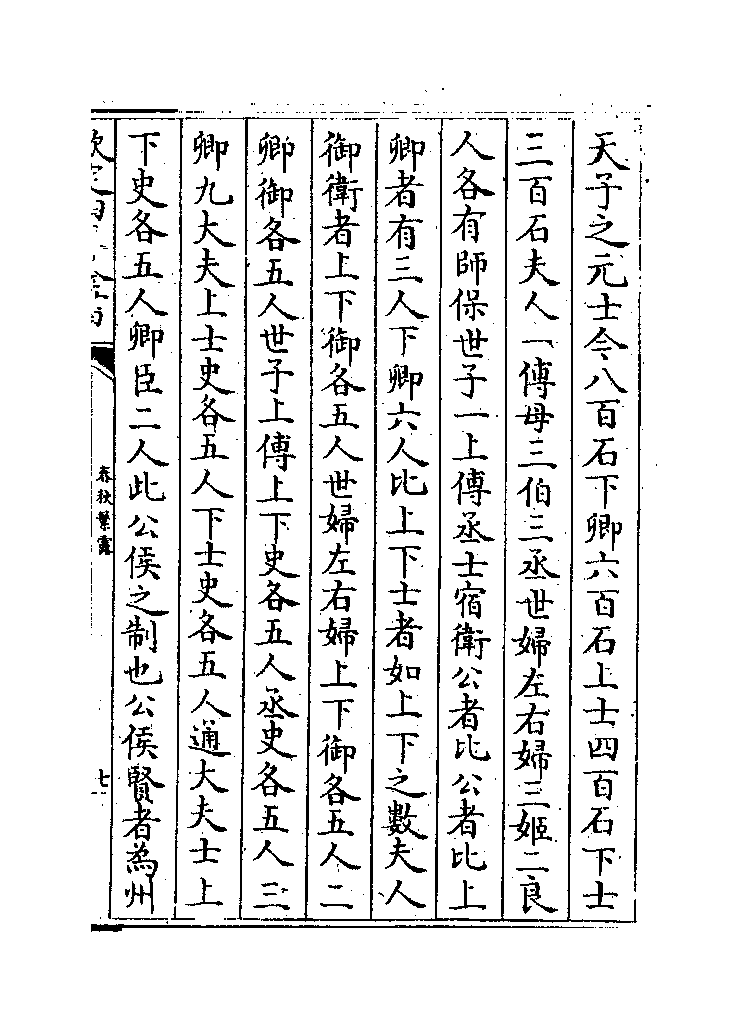 天子之元士今八百石下卿六百石上士四百石下士
三百石夫人一傅母三伯三丞世婦左右婦三姬二良
人各有師保世子一上傅丞士宿衛公者比公者比上
卿者有三人下卿六人比上下士者如上下之數夫人
御衛者上下御各五人世婦左右婦上下御各五人二
卿御各五人世子上傅上下史各五人丞史各五人三
卿九大夫上士史各五人下士史各五人通大夫士上
下史各五人卿臣二人此公侯之制也公侯賢者為州
春秋繁露
七